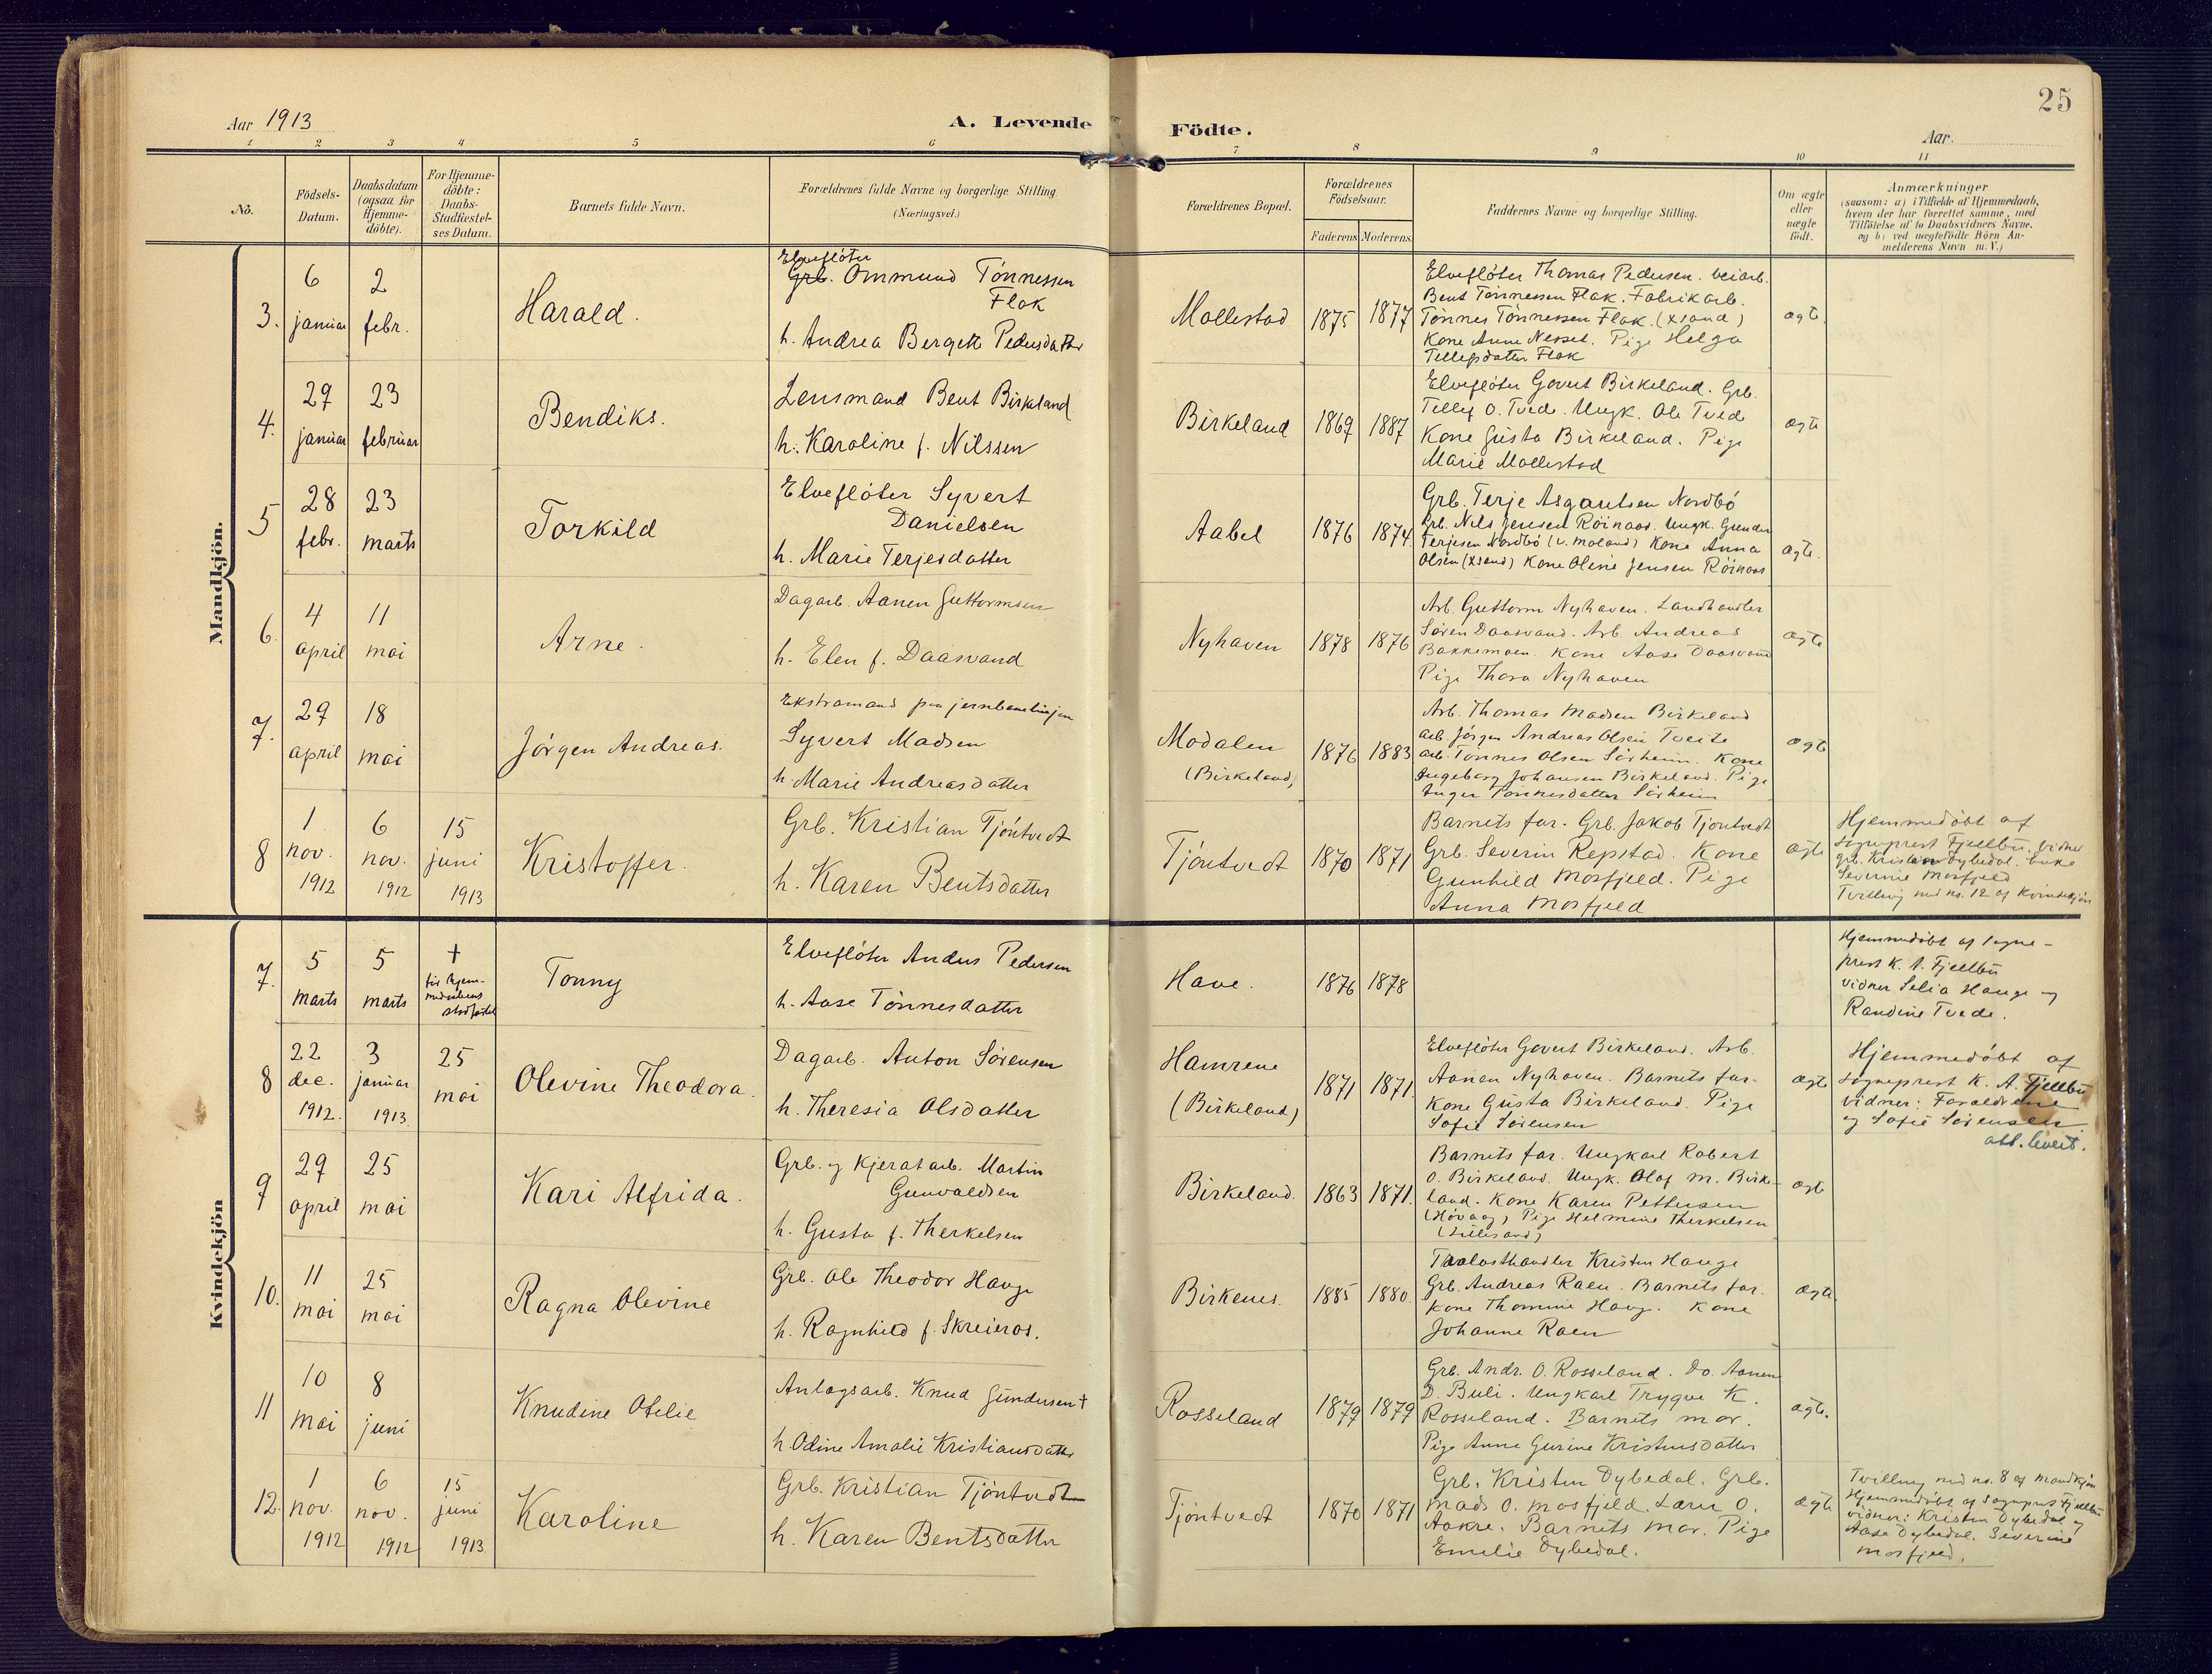 25
Aar 1913
A. Levende Födte.
Aar.
1 2 3 4 5 6 7 8 9 10 11
No.
Födsels-Datum.
Daabsdatum (ogsaa for Hjemme-döbte).
For Hjemme-döbte: Daabs-Stadfæstel-ses Datum.
Barnets fulde Navn.
Forældrenes fulde Navne og borgerlige Stilling (Næringsvei.)
Forældrenes Bopæl.
Forældrenes Födselsaar.
Faderens Moderens
Faddernes Navne og borgerlige Stilling.
Om ægte eller uægte födt.
Anmærkninger
(saasom: a) i Tilfælde af Hjemmedaab,
hvem der har forrettet samme, med
Tilföielse af to Daabsvidners Navne,
og b) ved uægtefödte Börn An-
melderens Navn m. V.)
Mandkjön.
3. 6 januar
2 febr.
Harald.
Elvefløter
Grb. Ommund Tønnessen
Flak
h. Andrea Bergete Pedersdatter
Mollestad
1875 1877
Elvefløter Thomas Pedersen. veiarb.
Bent Tønnessen Flak. Fabrikarb.
Tønnes Tønnessen Flak. (Xsand)
Kone Anne Nesset. Pige Helga
Tellefsdatter Flak
ægte.
4. 29 januar
23 februar
Bendiks.
Lensmand Bent Birkeland
h. Karoline f. Nilssen
Birkeland
1869 1887
Elvefløter Govert Birkeland. Grb.
Tellef O. Tved. Ungk. Ole Tved
Kone Gusta Birkeland. Pige
Marie Mollestad
ægte
5 28 febr.
23 marts
Torkild
Elvefløter Syvert
Danielsen
h. Marie Terjesdatter
Aabel
1876 1874.
Grb. Terje Asgautsen Nordbø
Grb. Nils Jensen Röinaas. Ungk. Gunder
Terjesen Nordbø (v. Moland) Kone Anna
Olsen (Xsand) Kone Oline Jensen Röinaas
ægte.
6. 4 april
11 mai
Arne.
Dagarb. Aanen Guttormsen
h. Elen f. Daasvand
Nyhaven
1878 1876
Arb. Guttorm Nyhaven. Landhandler
Søren Daasvand. Arb. Andreas
Bakkemoen. Kone Aase Daasvand
Pige Thora Nyhaven
ægte
7. 29 april
18 mai
Jørgen Andreas.
Ekstramand paa jernbanelinjen
Syvert Madsen
h. Marie Andreasdatter
Modalen
(Birkeland)
1876 1883
Arb. Thomas Madsen Birkeland
arb. Jørgen Andreas Olsen Tveite
arb. Tønnes Olsen Sørheim. Kone
Ingeborg Johansen Birkeland. Pige
Inger Tønnesdatter Sørheim
ægte
8 1 nov. 1912
6 nov. 1912
15 juni 1913
Kristoffer.
Grb. Kristian Tjøntvedt
h. Karen Bentsdatter
Tjøntvedt
1870 1871
Barnets far. Grb. Jakob Tjøntvedt
Grb. Severin Repstad. Kone
Gunhild Mosfjeld. Pige
Anna Mosfjeld
ægte
Hjemmedøbt af
sogneprest Fjellbu. vidner
grb. Kristen Dybedal. enke
Severine Mosfjeld
Tvilling med no. 12 af Kvindekjøn
Kvindekjön
7. 5 marts
5 marts
† før hjem-
medaabens
stadfæstel
Tonny
Elvefløter Anders Pedersen
h. Aase Tønnesdatter
Have.
1876 1878
Hjemmedøbt af sogne-
prest K. A. Fjellbu
vidner Selia Hauge og
Randine Tvede.
8 22 dec. 1912.
3 januar 1913
25 mai
Olevine Theodora.
Dagarb. Anton Sørensen
h. Theresia Olsdatter
Hamrene
(Birkeland)
1871 1871.
Elvefløter Govert Birkeland. Arb.
Aanen Nyhaven. Barnets far.
Kone Gusta Birkeland. Pige
Sofie Sørensen
ægte
Hjemmedøbt af
sogneprest K. A. Fjellbu
vidner: Forældrene
og Sofie Sørensen
att. levert.
9 29 april
25 mai
Kari Alfrida.
Grb. og Kjeratarb. Martin
Gunvaldsen
h. Gusta f. Therkelsen
Birkeland.
1863 1871.
Barnets far. Ungkarl Robert
O. Birkeland. Ungk. Olaf M. Birke-
land. Kone Karen Pettersen
(Høvaag) Pige Helmine Therkelsen
(Lillesand)
ægte
10. 11 mai
25 mai
Ragna Olevine
Grb. Ole Theodor Hauge
h. Ragnhild f. Skreieros.
Birkenes.
1885 1880.
Trælasthandler Kristen Hauge
Grb. Andreas Raen. Barnets far.
Kone Thomine Hauge. Kone
Johanne Raen
ægte
11 10 mai
8 juni
Knudine Ofelie
Anlægsarb. Knud Gundersen †
h. Odine Amalie Kristiansdatter
Rosseland
1879 1879
Grb. Andr. O. Rosseland. Do. Aanen
D. Buli. Ungkarl Trygve K.
Rosseland. Barnets mor.
Pige Anne Gurine Kristensdatter
ægte.
12. 1 nov. 1912
6 nov. 1912
15 juni 1913.
Karoline
Grb. Kristian Tjøntvedt
h. Karen Bentsdatter
Tjøntvedt
1870 1871
Grb. Kristen Dybedal. Grb.
Mads O. Mosfjeld. Lærer O.
Aakre. Barnets mor. Pige
Emelie Dybedal.
ægte
Tvilling med no. 8 af Mandkjøn
Hjemmedøbt af sogneprest Fjellbu
vidner: Kristen Dybedal og
Aase Dybedal. Severine
Mosfjeld.